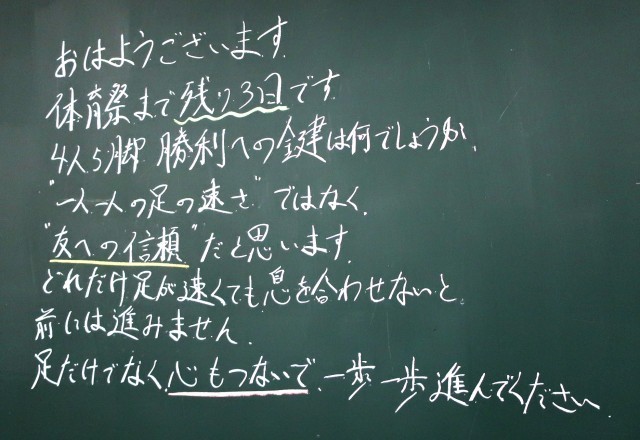 おはようございます.
体育祭まで残り3日です
4人5脚 勝利への鍵は何でしょうか.
"一人一人の足の速さ"ではなく.
"友への信頼"だと思います.
どれだけ足が速くても息を合わせないと.
前には進みません.
足だけでなく.心もつないで.一歩一歩進んでください.